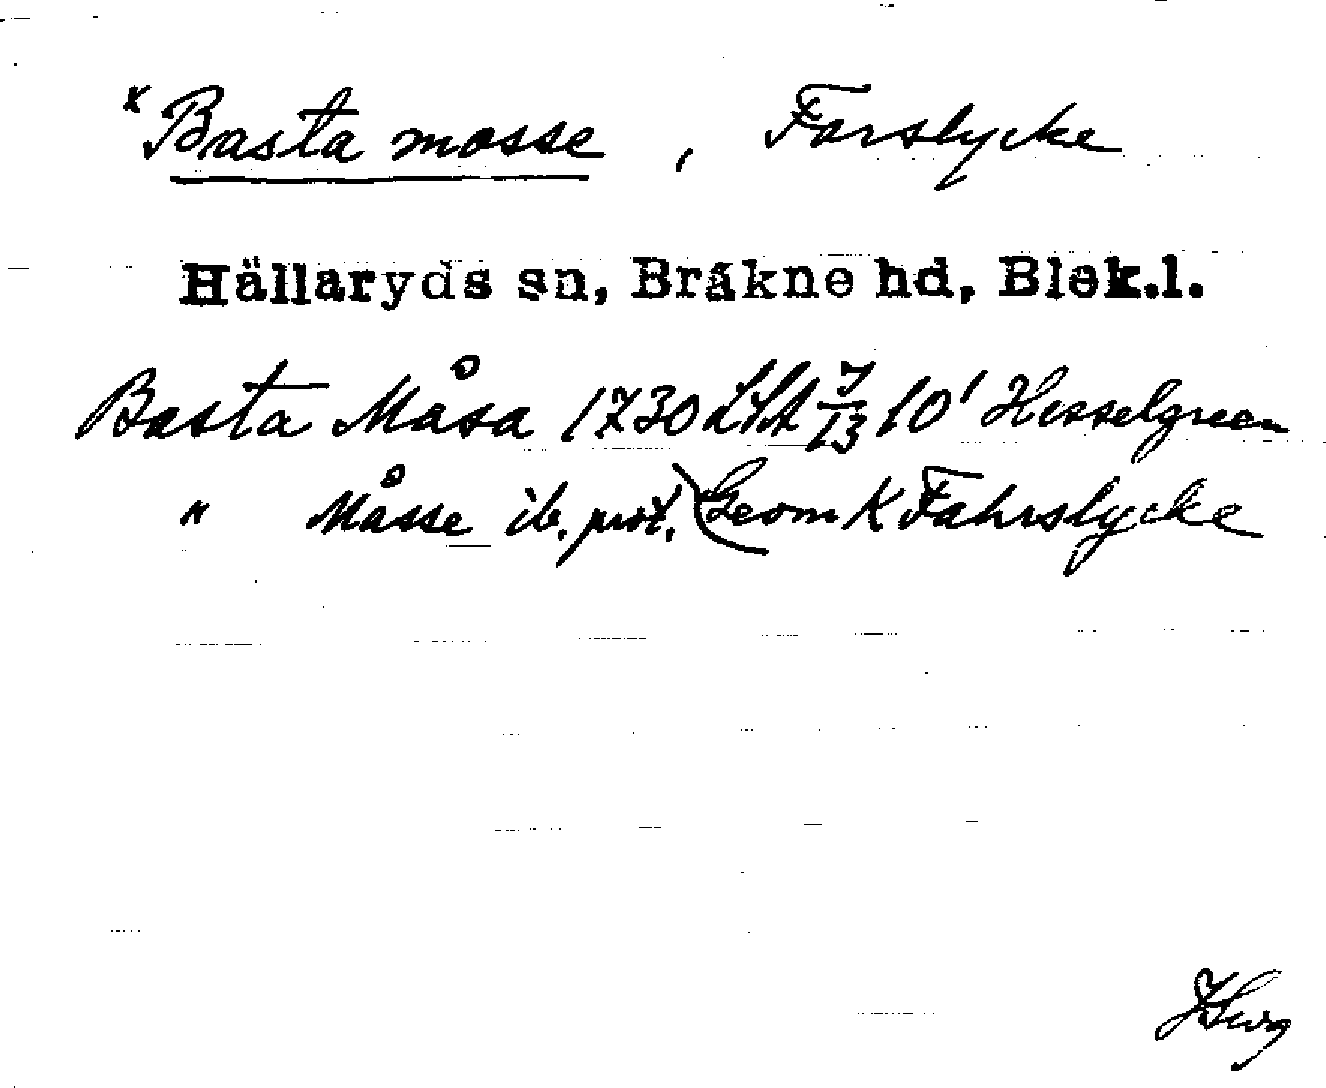 x Basta mosse, Farslycke
Hällaryds sn, Bräkne hd, Blek.l.
Basta Måsa 1730 LSA 7/13 10' Hesselgreen
" Måsse ib. prot. Geom K Fahrslycke